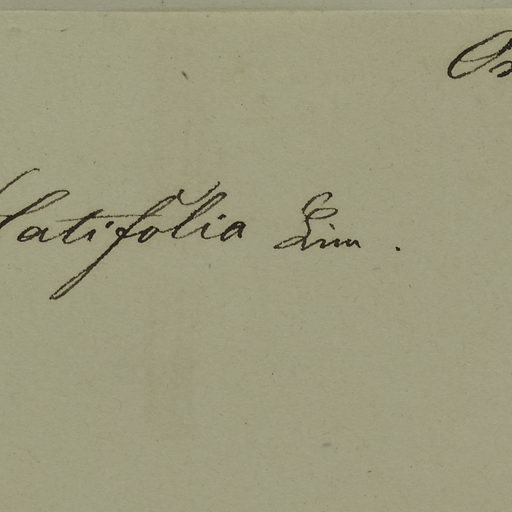 latifolia Lin .